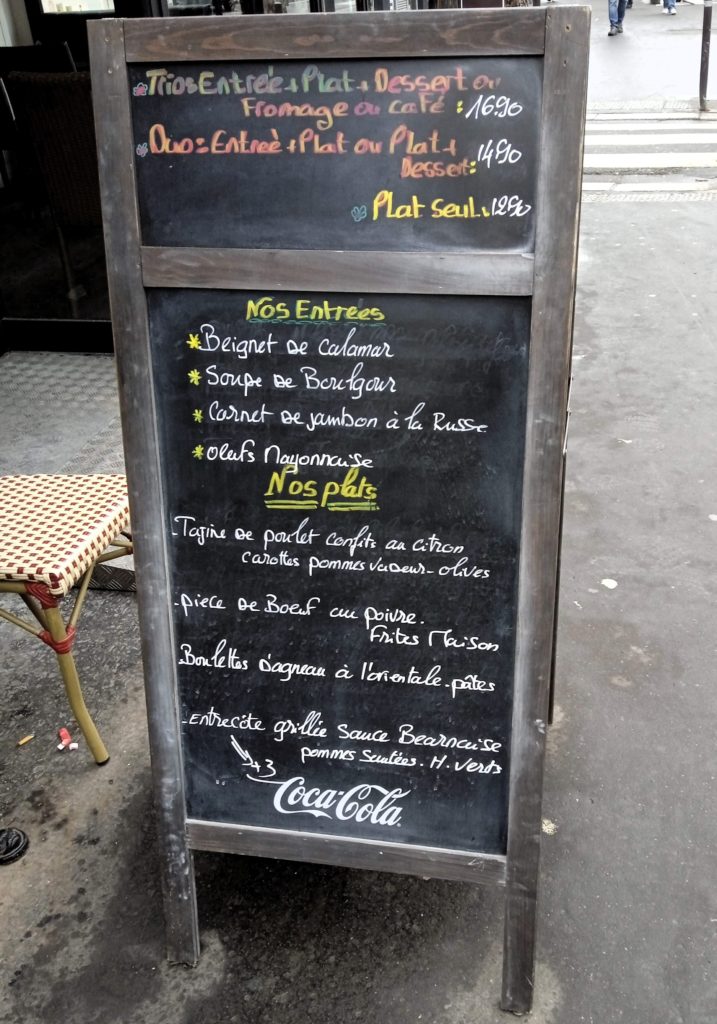 Trio: Entrée + Plat + Dessert ou
Fromage ou café : 16.90
Duo: Entreè + Plat ou Plat +
Dessert: 14.90
Plat seul. 12.90
Nos Entrees
* Beignet de calamar
* Soupe de Boulgour
* Cornet de jambon à la Russe
* Oeufs Mayonnaise
Nos plats
- Tajine de poulet confits au citron
carottes pommes vapeur - olives
- pièce de Boeuf au poivre.
Frites Maison
- Boulettes d'agneau à l'orientale - pâtes
- Entrecôte grillée sauce Bearnaise
pommes Sautées. H. verts
+3
Coca-Cola